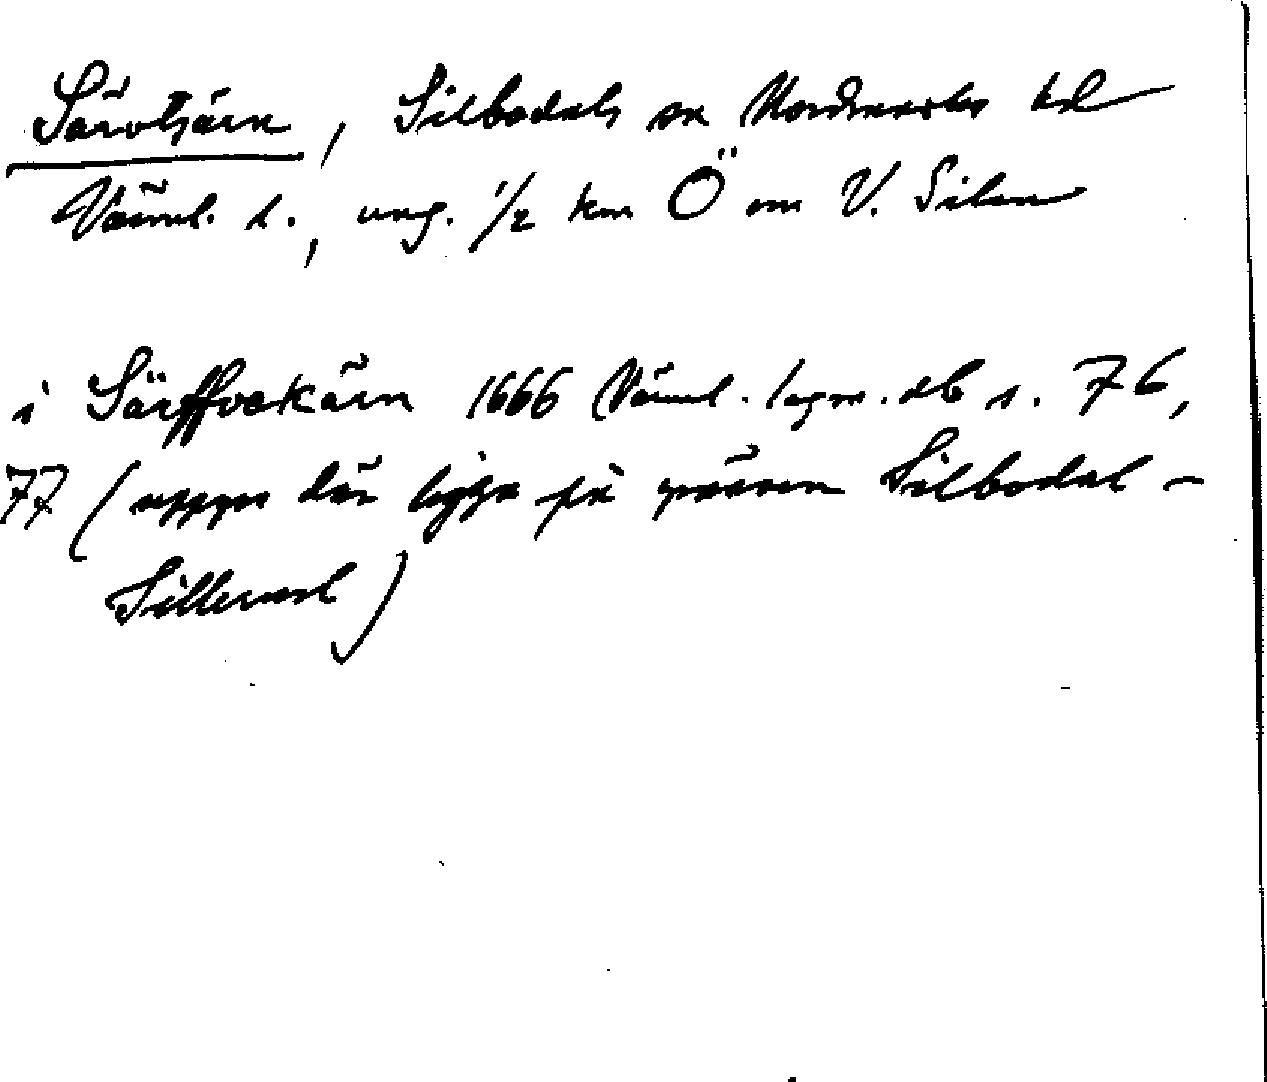 Särvtjärn, Silbodals sn Nordmarks hd
Värml. l., ung. 1/2 km Ö om V. Silen
i Särffvekärn 1666 Värml. lagm. db s. 76,
77 (uppges där ligga på gränsen Silbodal -
Sillerud)